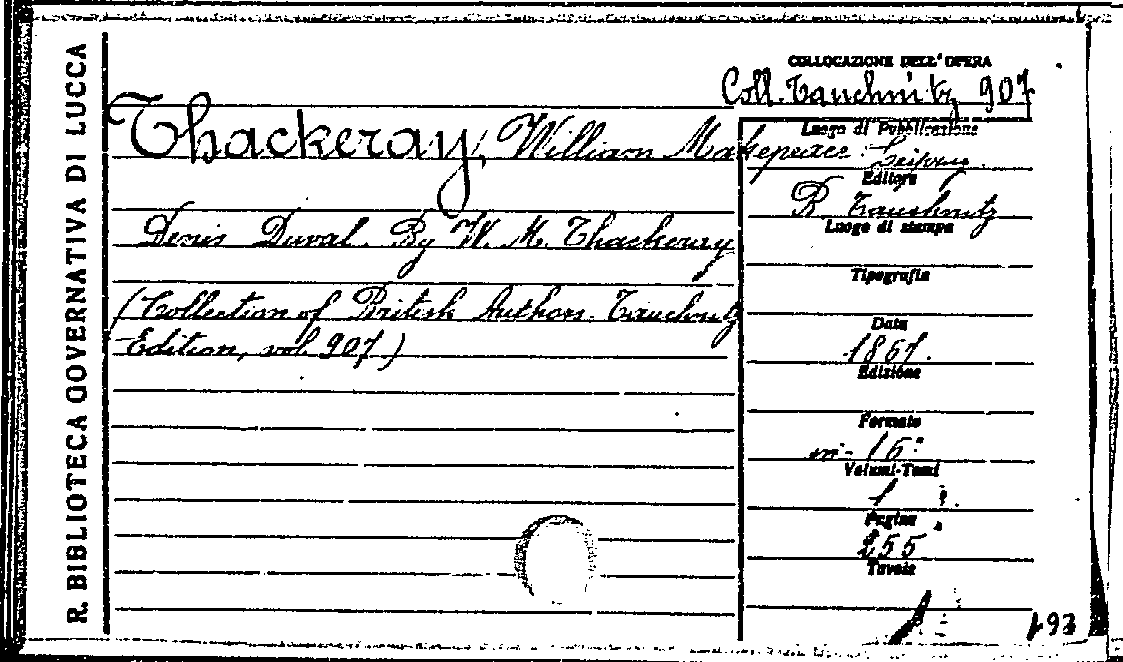 R. BIBLIOTECA GOVERNATIVA DI LUCCA
COLLOCAZIONE DELL'OPERA
Coll. Tauchnitz 907
Thackeray, William Makepeace
Denis Duval. By W. M. Thackeray
(Collection of British Authors. Tauchnitz
Edition, vol. 907.)
Luogo di Pubblicazione
Leipzig.
Editore
B. Tauchnitz
Luogo di stampa
Tipografia
Data
1867.
Edizione
Formato
in-16°
Volumi-Tomi
1
Pagine
255
Tavole